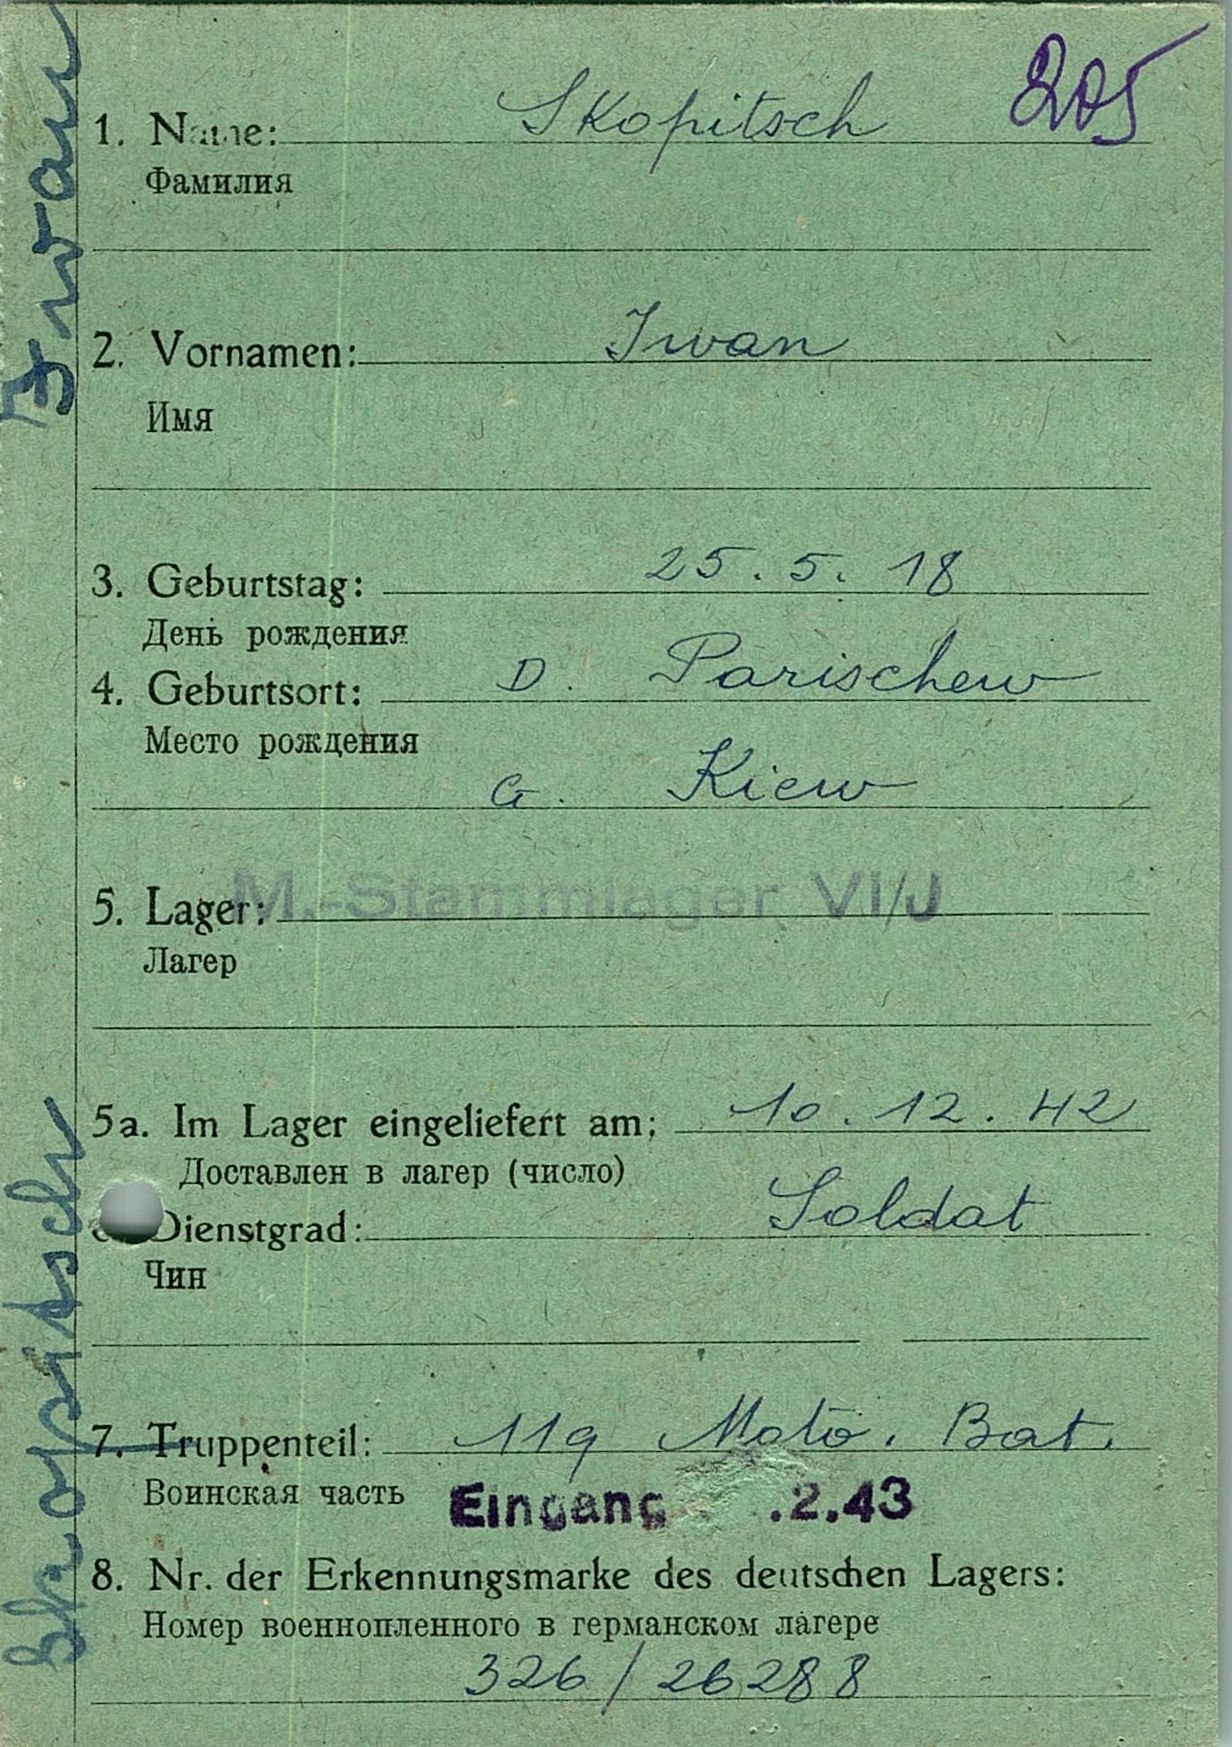 205
1. Name: Skopitsch
Фамилия
2. Vornamen: Iwan
Имя
3. Geburtstag: 25.5.18
День рождения
4. Geburtsort: D. Parischew
Место рождения
G. Kiew
5. Lager: M.-Stammlager VI/J
Лагер
5a. Im Lager eingeliefert am: 10.12.42
Доставлен в лагер (число)
Dienstgrad: Soldat
Чин
7. Truppenteil: 119 Moto. Bat.
Воинская часть
Eingang .2.43
8. Nr. der Erkennungsmarke des deutschen Lagers:
Номер военнопленного в германском лагере
326/26288
Skopitsch Iwan